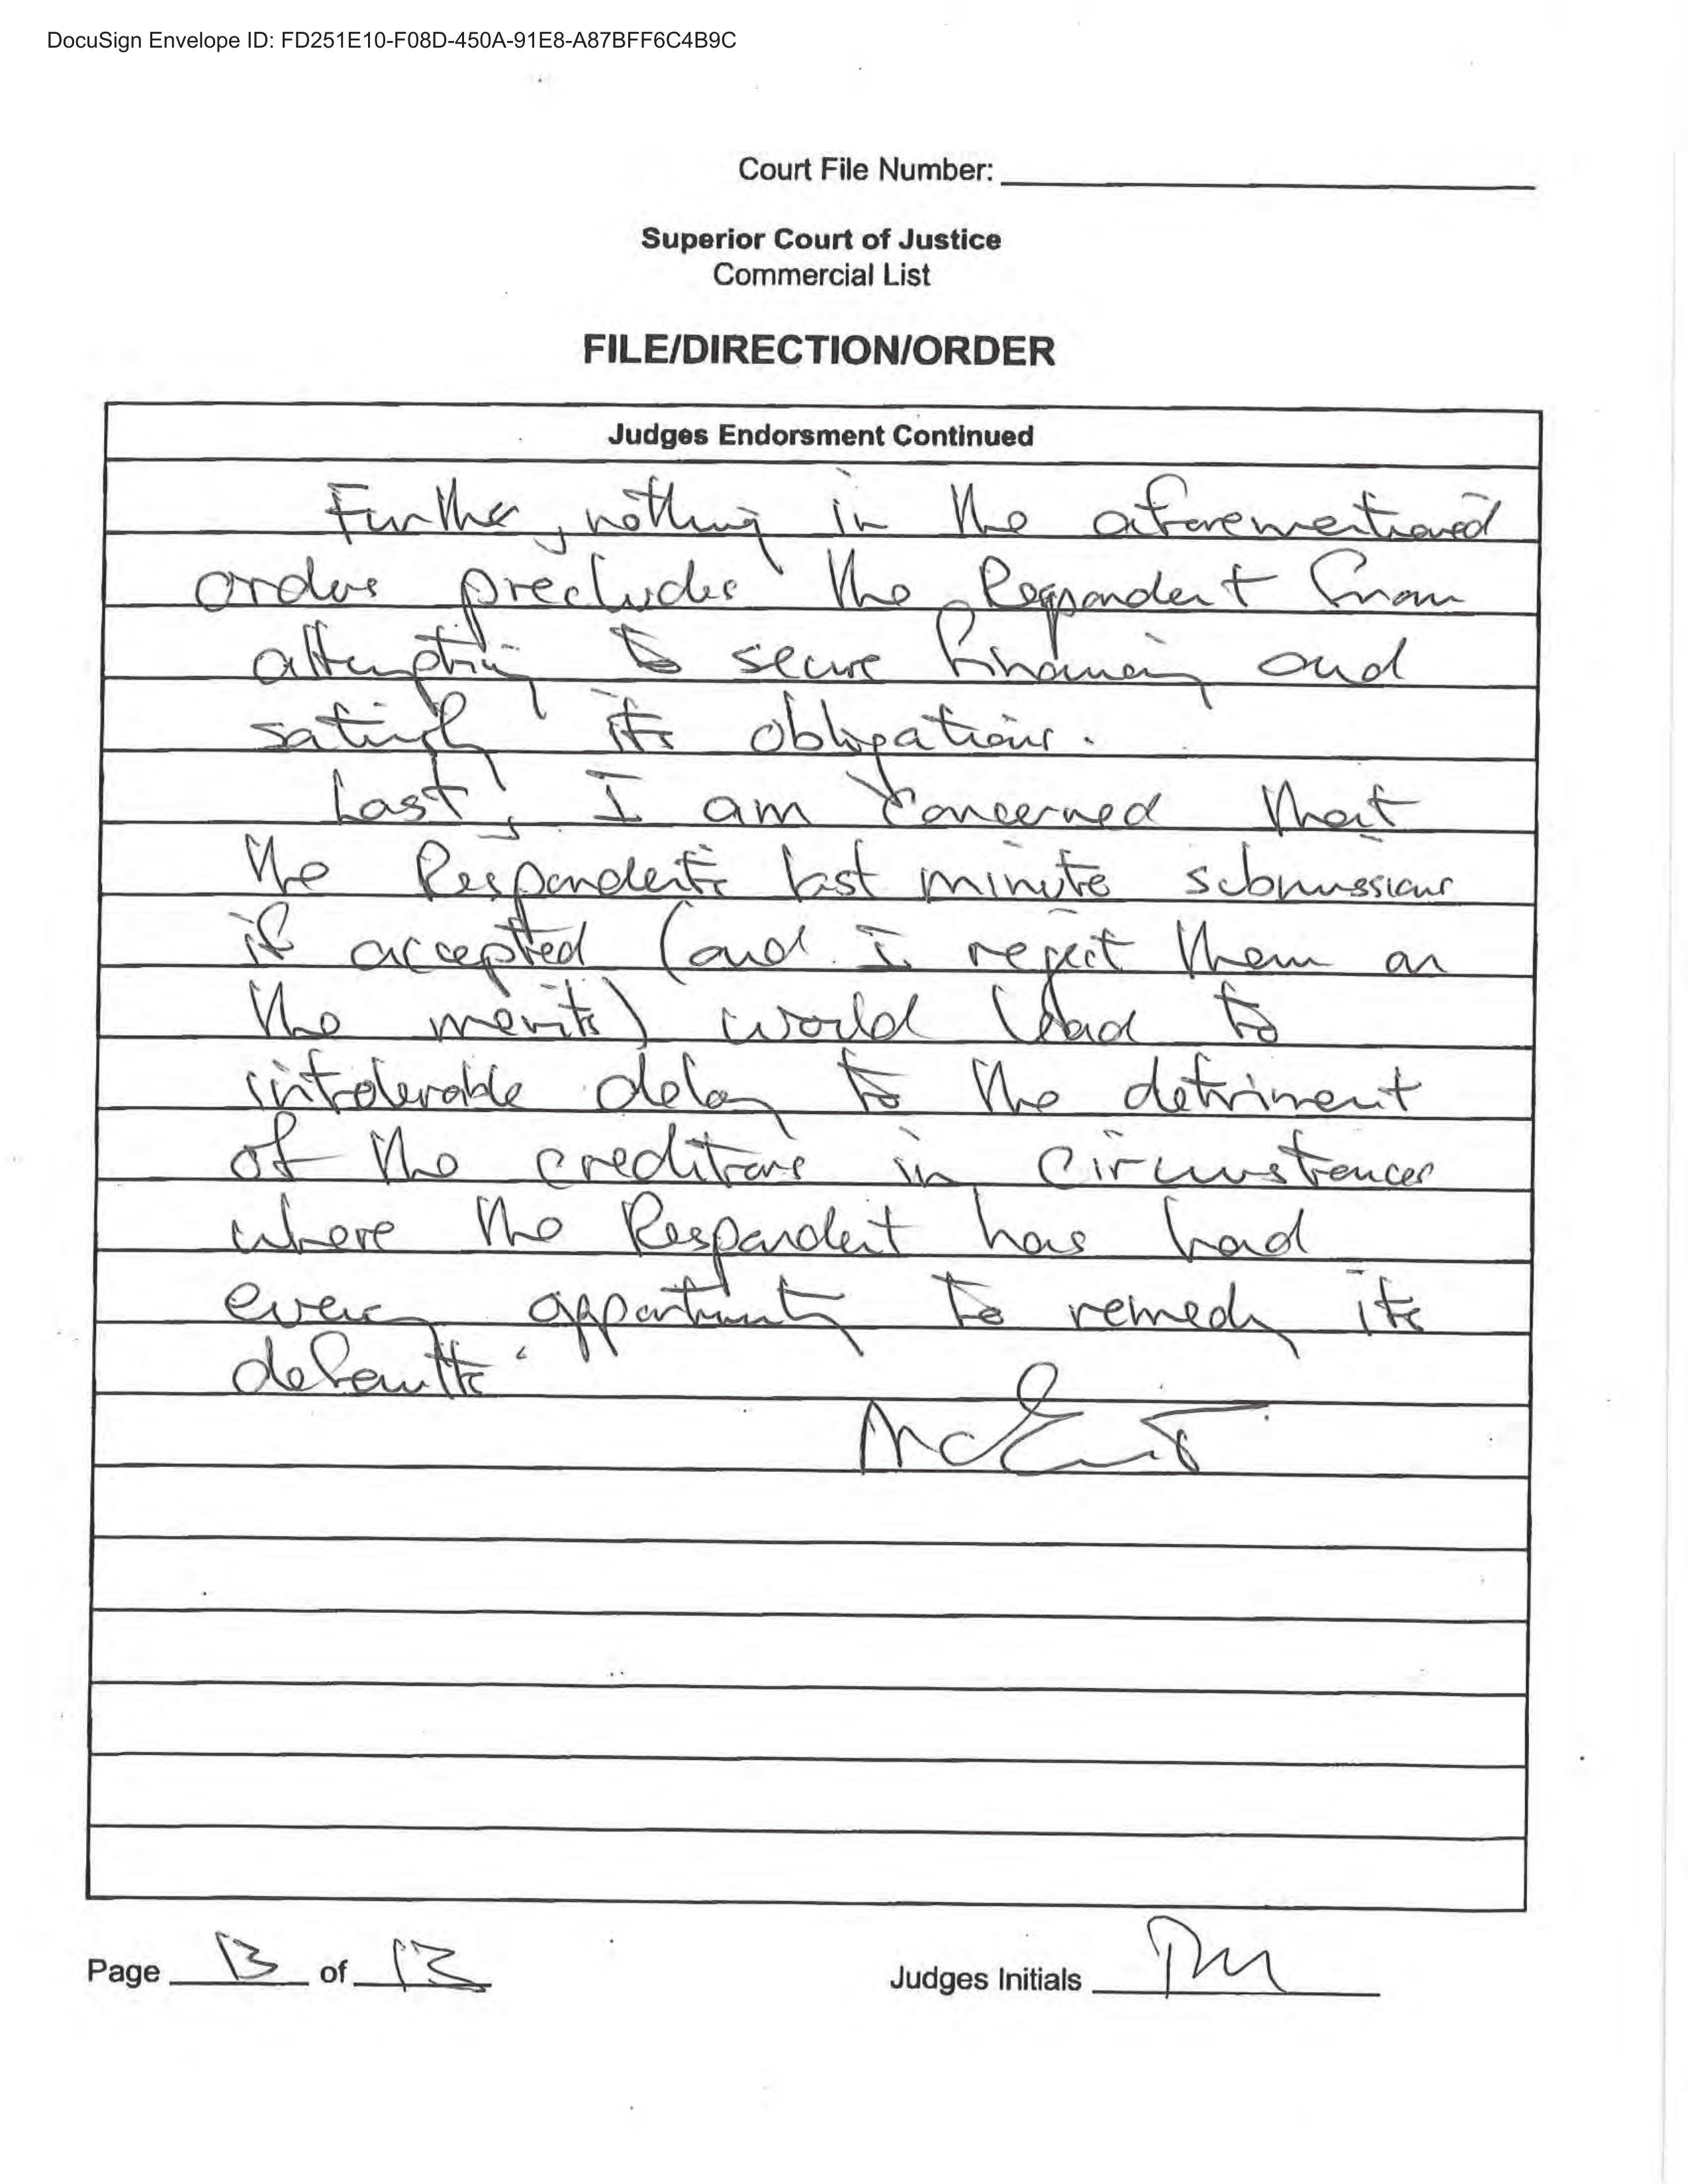 DocuSign Envelope ID: FD251E10-F08D-450A-91E8-A87BFF6C4B9C
Court File Number:
Superior Court of Justice
Commercial List
FILE/DIRECTION/ORDER
Judges Endorsment Continued
Further, nothing in the aforementioned
orders precludes the Respondent from
attempting to secure financing and
satisfy its obligations.
Last, I am concerned that
the Respondent's last minute submissions
if accepted (and I reject them on
the merits) would lead to
intolerable delay to the detriment
of the creditors in circumstances
where the Respondent has had
every opportunity to remedy its
defaults.
Page 13 of 13
Judges Initials